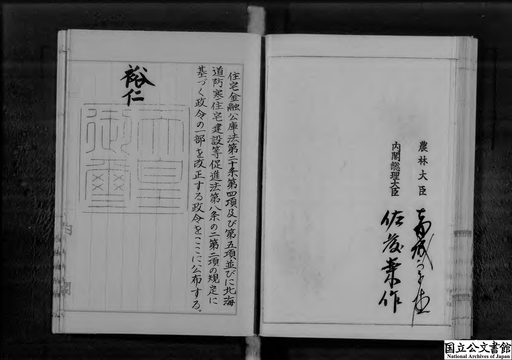 住宅金融公庫法第二十条第四項及び第五項並びに北海
道防寒住宅建設等促進法第八条の二第二項の規定に
基づく政令の一部を改正する政令をここに公布する。
裕仁
天皇
御璽
農林大臣
内閣総理大臣 佐藤栄作
国立公文書館
National Archives of Japan